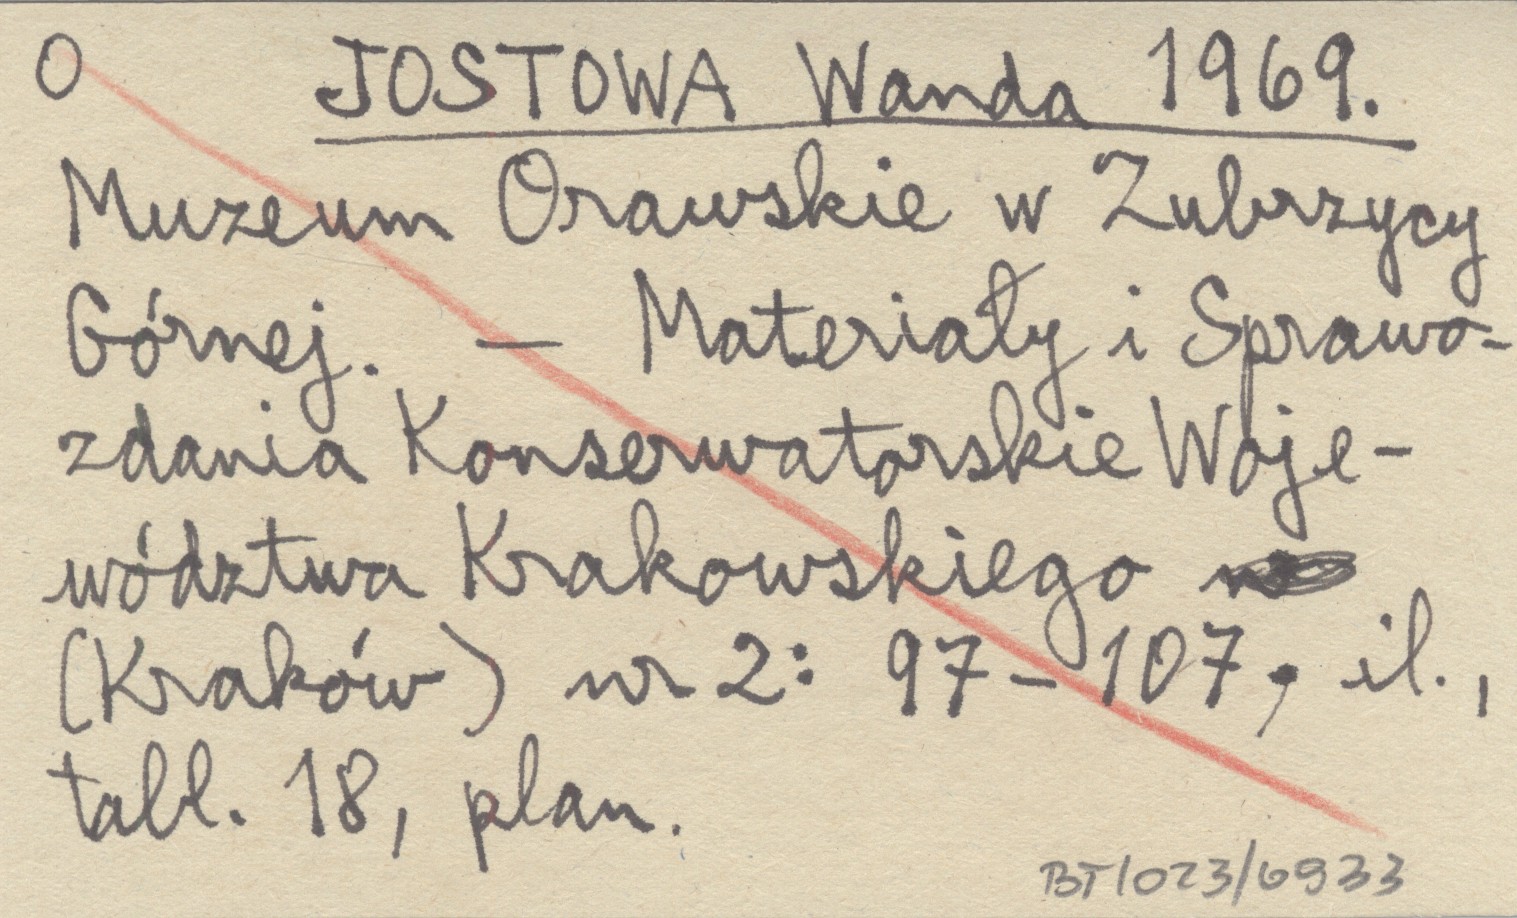 O JOSTOWA Wanda 1969.
Muzeum Orawskie w Zubrzycy
Górnej. — Materiały i Sprawo-
zdania Konserwatorskie Woje-
wództwa Krakowskiego
(Kraków) nr 2: 97-107, il.,
tabl. 18, plan.
BT/023/6933